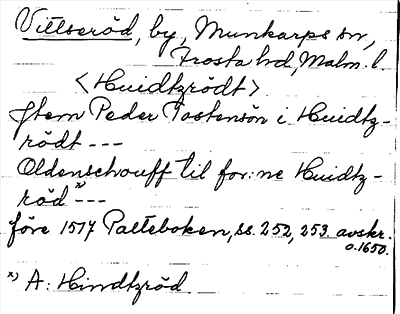 Vittseröd, by, Munkarps sn,
Frosta hd, Malm. l.
<Huidtzrödt>
Jtem Peder Tostensön i Huidtz-
rödt ---
Oldenschouff til for:ne Huidtz-
röd*) ---
före 1517 Palteboken, ss. 252, 253 avskr.
o.1650.
*) A: Hindtzröd